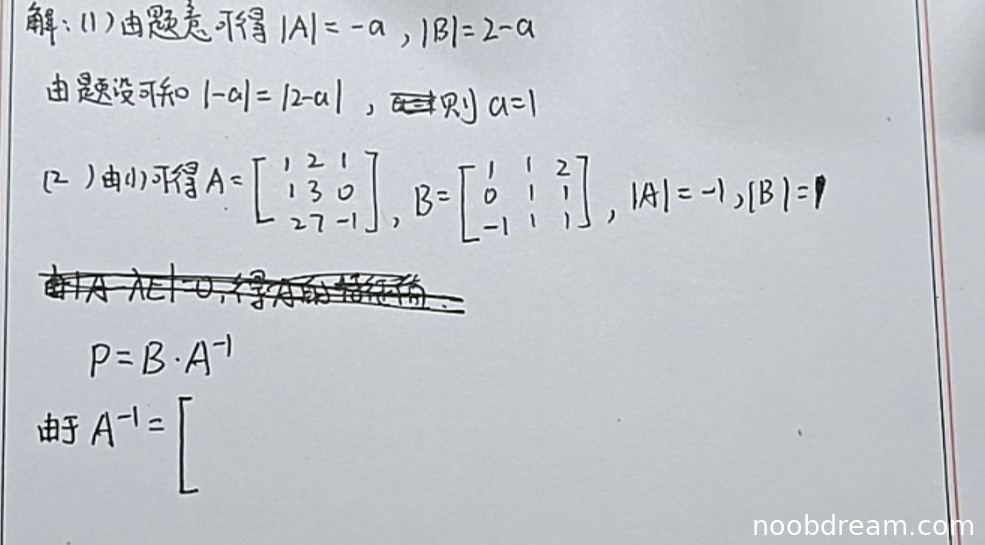 解：(1)由题意可得 |A|=-a，|B|=2-a
由题设可知 |-a|=|2-a|，则 a=1
(2)由(1)可得 A=[1 2 1; 1 3 0; 2 7 -1]，B=[1 1 2; 0 1 1; -1 1 1]，|A|=-1，|B|=1
由|A-λE|=0，得A的特征值
P=B·A⁻¹
由于 A⁻¹=[
noobdream.com